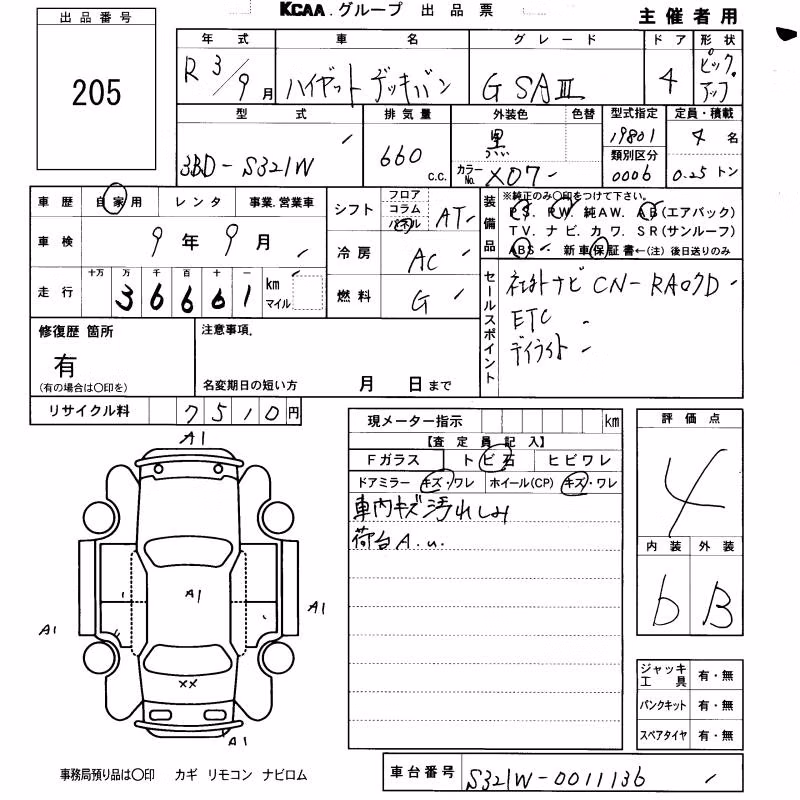 KCAA.グループ 出品票
主催者用
出品番号
205
年式 車名 グレード ドア 形状
R 3/9月 ハイゼット デッキバン G SAⅢ 4 ピックアップ
型式 排気量 外装色 色替 型式指定 定員・積載
3BD-S321W 660 c.c. 黒 19801 4名
カラーNo. X07 類別区分 0006 0.25トン
車歴 自家用 レンタ 事業.営業車
車検 9年9月
走行 十万 万 千 百 十 一 km マイル
36661
シフト フロア コラム パネル AT
冷房 AC
燃料 G
装備品 ※純正のみ〇印をつけて下さい。
PS. PW. 純AW. AB(エアバック)
TV. ナビ. カワ. SR(サンルーフ)
ABS 新車保証書←(注)後日送りのみ
セールスポイント
ナビ CN-RA07D
ETC
デイライト
修復歴 箇所
有
(有の場合は〇印を)
注意事項.
名変期日の短い方 月 日まで
リサイクル料 7510円
現メーター指示 km
【査定員記入】
Fガラス トビ石 ヒビワレ
ドアミラー キズ・ワレ ホイール(CP) キズ・ワレ
車内キズ汚れしみ
荷台A.u.
評価点
4
内装 外装
b B
A1
A1
A1
A1
XX
A1
ジャッキ工具 有・無
パンクキット 有・無
スペアタイヤ 有・無
事務局預り品は〇印 カギ リモコン ナビロム
車台番号 S321W-0011136